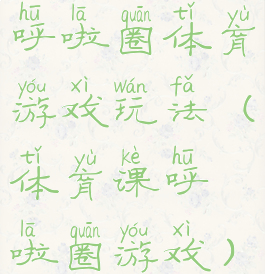 hū lā quān tǐ yù
呼啦圈体育
yóu xì wán fǎ
游戏玩法（
tǐ yù kè hū
体育课呼
lā quān yóu xì
啦圈游戏）